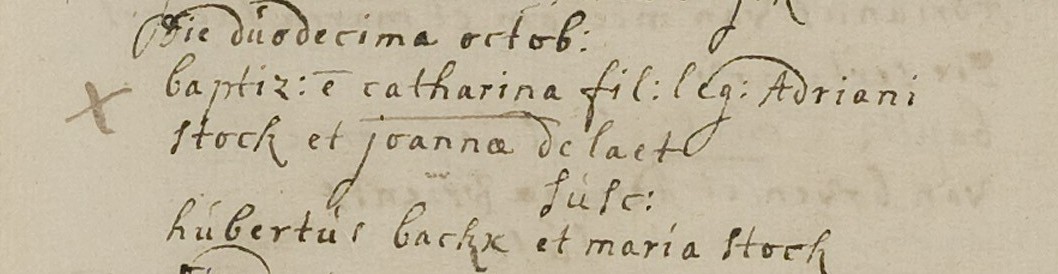 Die duodecima octob:
baptiz: ē catharina fil: leg: Adriani
stock et joannæ de laet
susc:
hubertus backx et maria stock